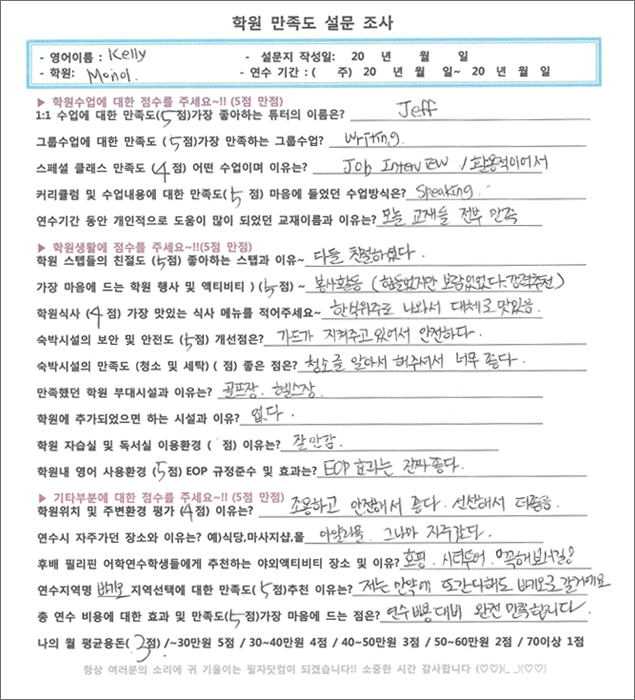 학원 만족도 설문 조사
- 영어이름 : Kelly - 설문지 작성일: 20 년 월 일
- 학원: Monol. - 연수 기간 : ( 주) 20 년 월 일~ 20 년 월 일
▶ 학원수업에 대한 점수를 주세요~!! (5점 만점)
1:1 수업에 대한 만족도(5점)가장 좋아하는 튜터의 이름은? Jeff
그룹수업에 대한 만족도 (5점)가장 만족하는 그룹수업? writing.
스페셜 클래스 만족도 (4점) 어떤 수업이며 이유는? Job Interview / 활용적이어서
커리큘럼 및 수업내용에 대한 만족도(5점) 마음에 들었던 수업방식은? speaking.
연수기간 동안 개인적으로 도움이 많이 되었던 교재이름과 이유는? 오늘 교재들 전부 만족
▶ 학원생활에 점수를 주세요~!!(5점 만점)
학원 스텝들의 친절도 (5점) 좋아하는 스탭과 이유~ 다들 친절하셨다.
가장 마음에 드는 학원 행사 및 액티비티 ) (5점) ~ 봉사활동 (힘들었지만 보람있었다. 강력추천)
학원식사 (4점) 가장 맛있는 식사 메뉴를 적어주세요~ 한식위주로 나와서 대체로 맛있음.
숙박시설의 보안 및 안전도 (5점) 개선점은? 가드가 지켜주고 있어서 안전하다.
숙박시설의 만족도 (청소 및 세탁) ( 점) 좋은 점은? 청소를 알아서 해주셔서 너무 좋다.
만족했던 학원 부대시설과 이유는? 골프장. 헬스장.
학원에 추가되었으면 하는 시설과 이유? 없다.
학원 자습실 및 독서실 이용환경 ( 점) 이유는? 잘 안감.
학원내 영어 사용환경 (5점) EOP 규정준수 및 효과는? EOP 효과는 진짜 좋다.
▶ 기타부분에 대한 점수를 주세요~!! (5점 만점)
학원위치 및 주변환경 평가 (4점) 이유는? 조용하고 안전해서 좋다. 선선해서 더 좋음.
연수시 자주가던 장소와 이유는? 예)식당,마사지샵,몰 아얄라몰. 그나마 자주갔다.
후배 필리핀 어학연수학생들에게 추천하는 야외액티비티 장소 및 이유? 호핑. 시티투어. 꼭해보셔길!
연수지역명 바기오 지역선택에 대한 만족도(5점)추천 이유는? 저는 만약에 또간다해도 바기오로 갈거예요
총 연수 비용에 대한 효과 및 만족도(5점)가장 마음에 드는 점은? 연수비용 대비 완전 만족합니다.
나의 월 평균용돈(3점) /~30만원 5점 / 30~40만원 4점 / 40~50만원 3점 / 50~60만원 2점 / 70이상 1점
항상 여러분의 소리에 귀 기울이는 필자닷컴이 되겠습니다!! 소중한 시간 감사합니다 (♡♡)(_ _)(♡♡)